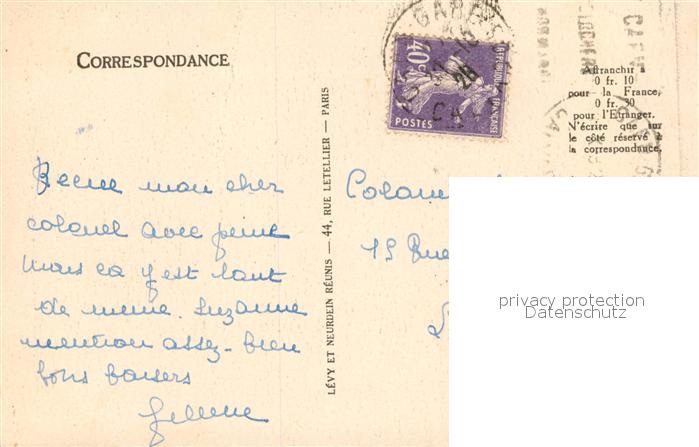 CORRESPONDANCE
GARE
40c
REPUBLIQUE FRANÇAISE
POSTES
28
Affranchir à
0 fr. 10
pour la France,
0 fr. 30
pour l'Etranger.
N'écrire que sur
le côté réservé à
la correspondance.
LÉVY ET NEURDEIN RÉUNIS — 44, RUE LETELLIER — PARIS
Recue mon cher
colonel avec peine
mais ca y est tout
de meme. Suzanne
mention assez-bien
bons baisers
15 Rue
privacy protection
Datenschutz